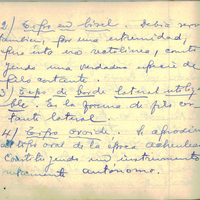 2) Tipo en bisel. Debió servir
también, por una extremidad,
pero esto era rectilíneo, consti
yendo una verdadera especie de
filo cortante.
3) Tipo de borde lateral utiliza
ble. Es la forma de filo cor
tante lateral
4) Tipo ovoide. Se aproxima
al tipo oval de la época acheulense
Constituyendo un instrumento
netamente autónomo.